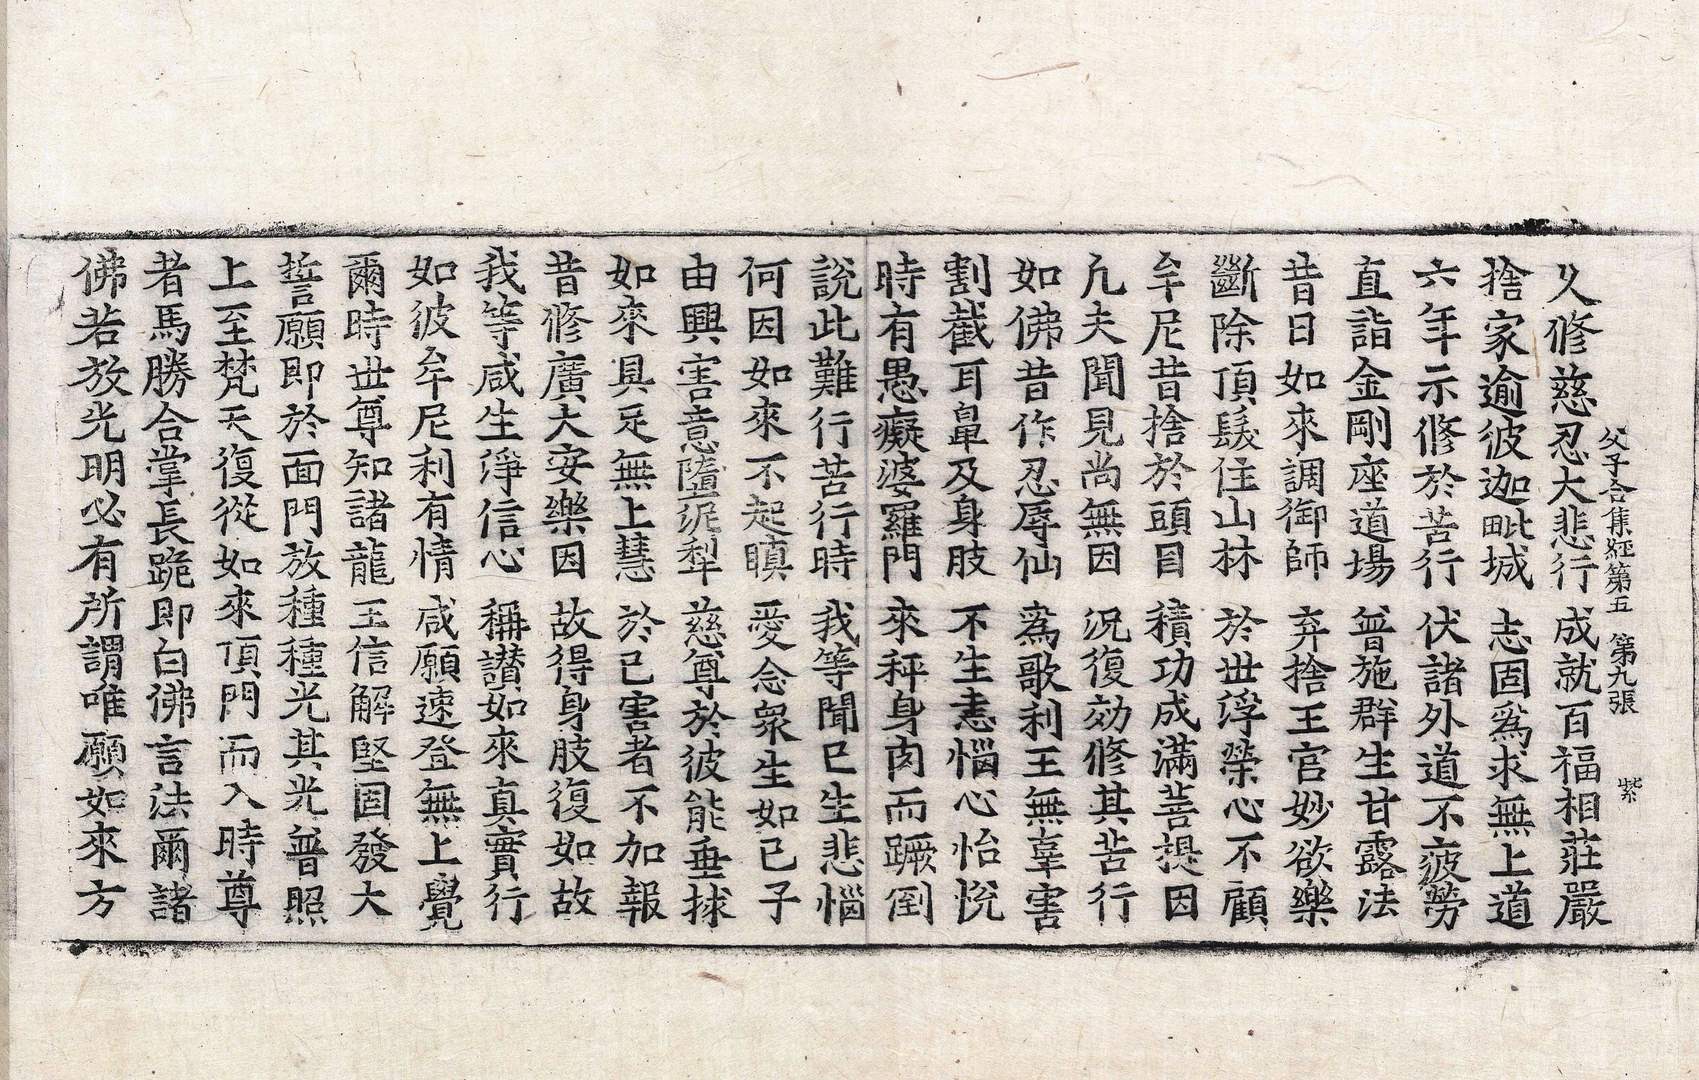 父子合集經第五 第九張 紫
久修慈忍大悲行 成就百福相莊嚴
捨家逾彼迦毗城 志固爲求無上道
六年示修於苦行 伏諸外道不疲勞
直詣金剛座道場 普施群生甘露法
昔日如來調御師 弃捨王宮妙欲樂
斷除頂髮住山林 於世浮榮心不顧
牟尼昔捨於頭目 積功成滿菩提因
凡夫聞見尚無因 況復効修其苦行
如佛昔作忍辱仙 爲歌利王無辜害
割截耳鼻及身肢 不生恚惱心怡悅
時有愚癡婆羅門 來秤身肉而蹶倒
說此難行苦行時 我等聞已生悲惱
何因如來不起瞋 愛念衆生如己子
由興害意墮泥犁 慈尊於彼能垂捄
如來具足無上慧 於己害者不加報
昔修廣大安樂因 故得身肢復如故
我等咸生淨信心 稱讃如來真實行
如彼牟尼利有情 咸願速登無上覺
爾時世尊知諸龍王信解堅固發大
誓願即於面門放種種光其光普照
上至梵天復從如來頂門而入時尊
者馬勝合掌長跪即白佛言法爾諸
佛若放光明必有所謂唯願如來方